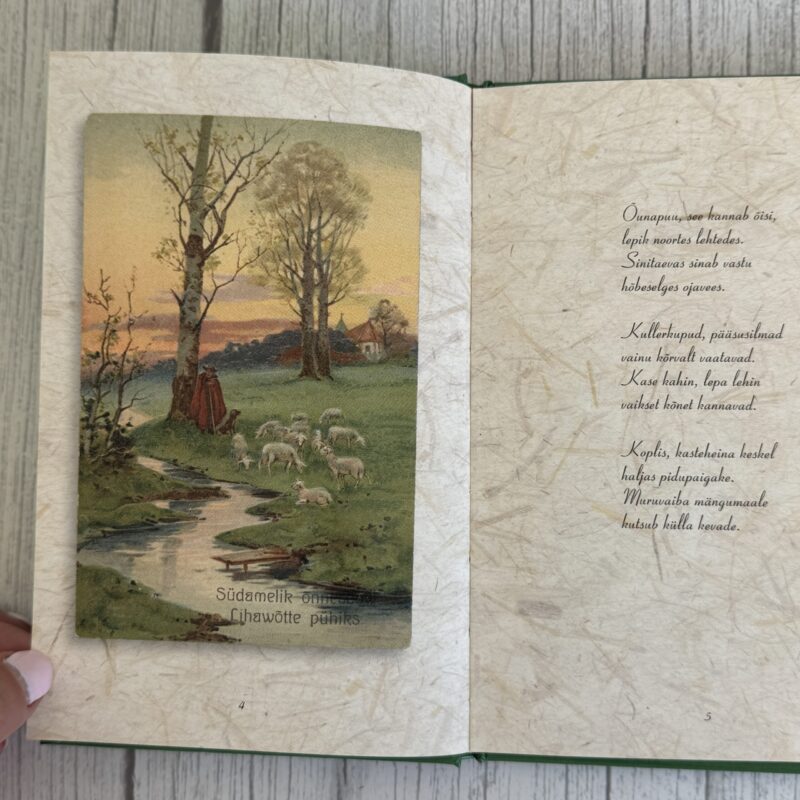 Südamelik õnnesoow
Lihawõtte pühiks
4
Õunapuu, see kannab õisi,
lepik noortes lehtedes.
Sinitaevas sinab vastu
hõbeselges ojavees.
Kullerkupud, pääsusilmad
vainu kõrvalt vaatavad.
Kase kahin, lepa lehin
vaikset kõnet kannavad.
Koplis, kasteheina keskel
haljas pidupaigake.
Muruvaiba mängumaale
kutsub külla kevade.
5